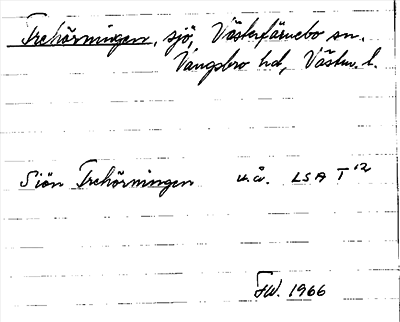 Trehörningen, sjö, Västerfärnebo sn.
Vangsbro hd, Västm. l.
Siön Trehörningen u.å. LSA T 12
FW. 1966